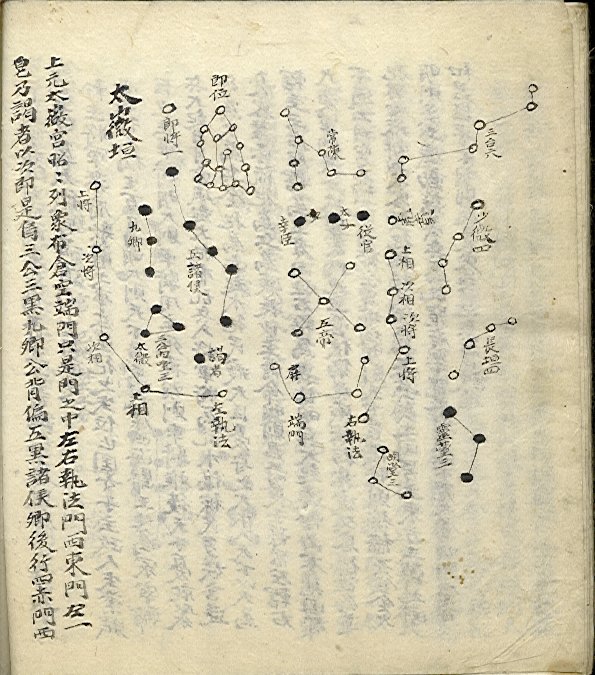 三台六
少微四
長垣四
靈臺三
常陳
從官
太子
幸臣
上相
次相
次将
上将
五帝
屏
端門
右執法
明堂三
郎位
郎将一
九卿
五諸侯
謁者
左執法
太微
上相
次相
次将
上将
太微垣
上元太微宮昭〻列象布倉空端門只是門之中左右執法門西東門左一
皂乃謁者以次即是烏三公三黑九卿公背傍五黑諸侯卿後行四赤門西